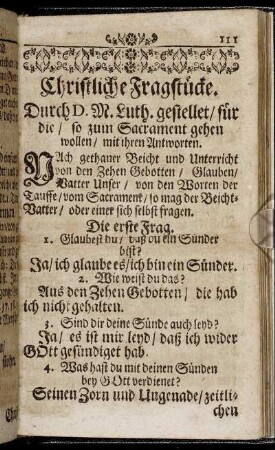 111
Christliche Fragstücke.
Durch D. M. Luth. gestellet/ für
die/ so zum Sacrament gehen
wollen/ mit ihren Antworten.
NAch gethaner Beicht und Unterricht
von den Zehen Gebotten/ Glauben/
Vatter Unser/ von den Worten der
Tauffe/ vom Sacrament/ so mag der Beicht-
Vatter/ oder einer sich selbst fragen.
Die erste Frag.
1. Glaubest du/ daß du ein Sünder
bist?
Ja/ ich glaube es/ ich bin ein Sünder.
2. Wie weist du das?
Aus den Zehen Gebotten/ die hab
ich nicht gehalten.
3. Sind dir deine Sünde auch leyd?
Ja/ es ist mir leyd/ daß ich wider
GOtt gesündiget hab.
4. Was hast du mit deinen Sünden
bey GOtt verdienet?
Seinen Zorn und Ungenade/ zeitli-
chen